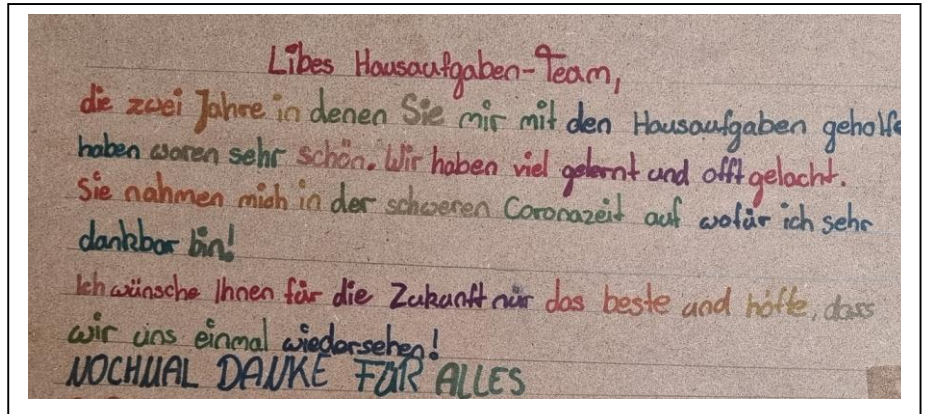 Libes Hausaufgaben-Team,
die zwei Jahre in denen Sie mir mit den Hausaufgaben geholfe
haben waren sehr schön. Wir haben viel gelernt und offt gelacht.
Sie nahmen mich in der schweren Coronazeit auf wofür ich sehr
dankbar bin!
Ich wünsche Ihnen für die Zukunft nur das beste und hoffe, dass
wir uns einmal wiedersehen!
NOCHMAL DANKE FÜR ALLES